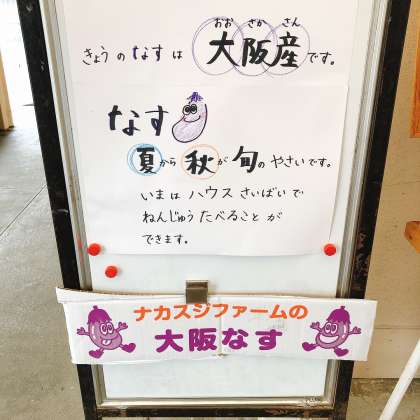 おお さか さん
きょうのなすは 大阪産です。
なす
夏から 秋が 旬の やさいです。
いまは ハウス さいばい で
ねんじゅう たべること が
できます。
ナカスジファームの
大阪なす